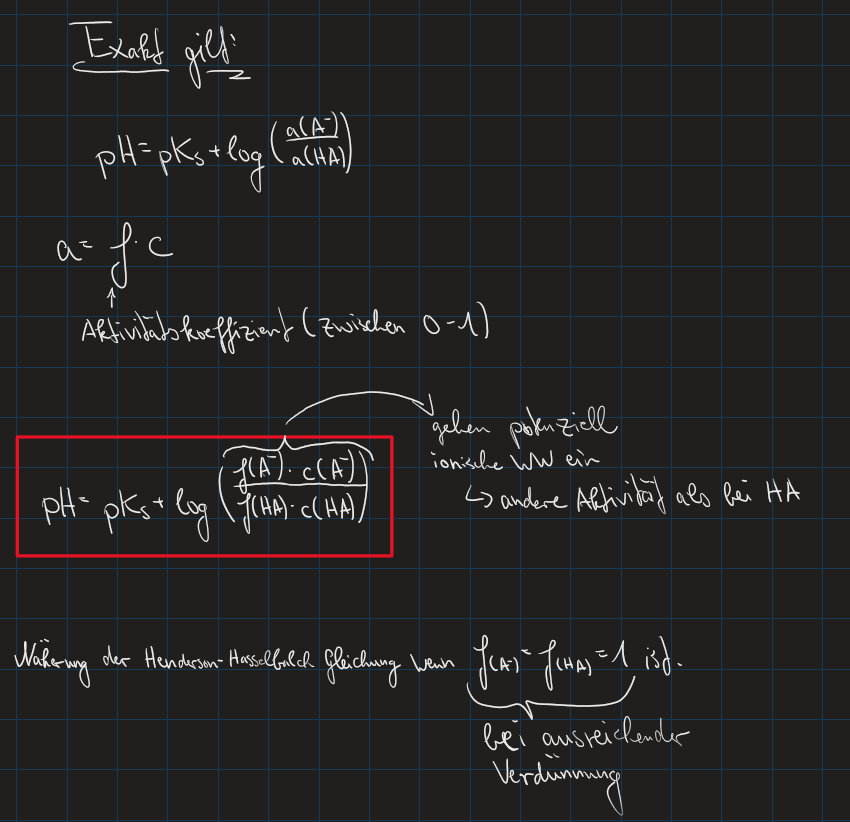 Exakt gilt:
pH = pKs + log (a(A⁻) / a(HA))
a = f · c
↑
Aktivitätskoeffizient (zwischen 0-1)
gehen potenziell
ionische WW ein
↳ andere Aktivität als bei HA
pH = pKs + log (f(A⁻) · c(A⁻) / f(HA) · c(HA))
Näherung der Henderson-Hasselbalch Gleichung wenn f(A⁻) = f(HA) = 1 ist.
bei ausreichender
Verdünnung